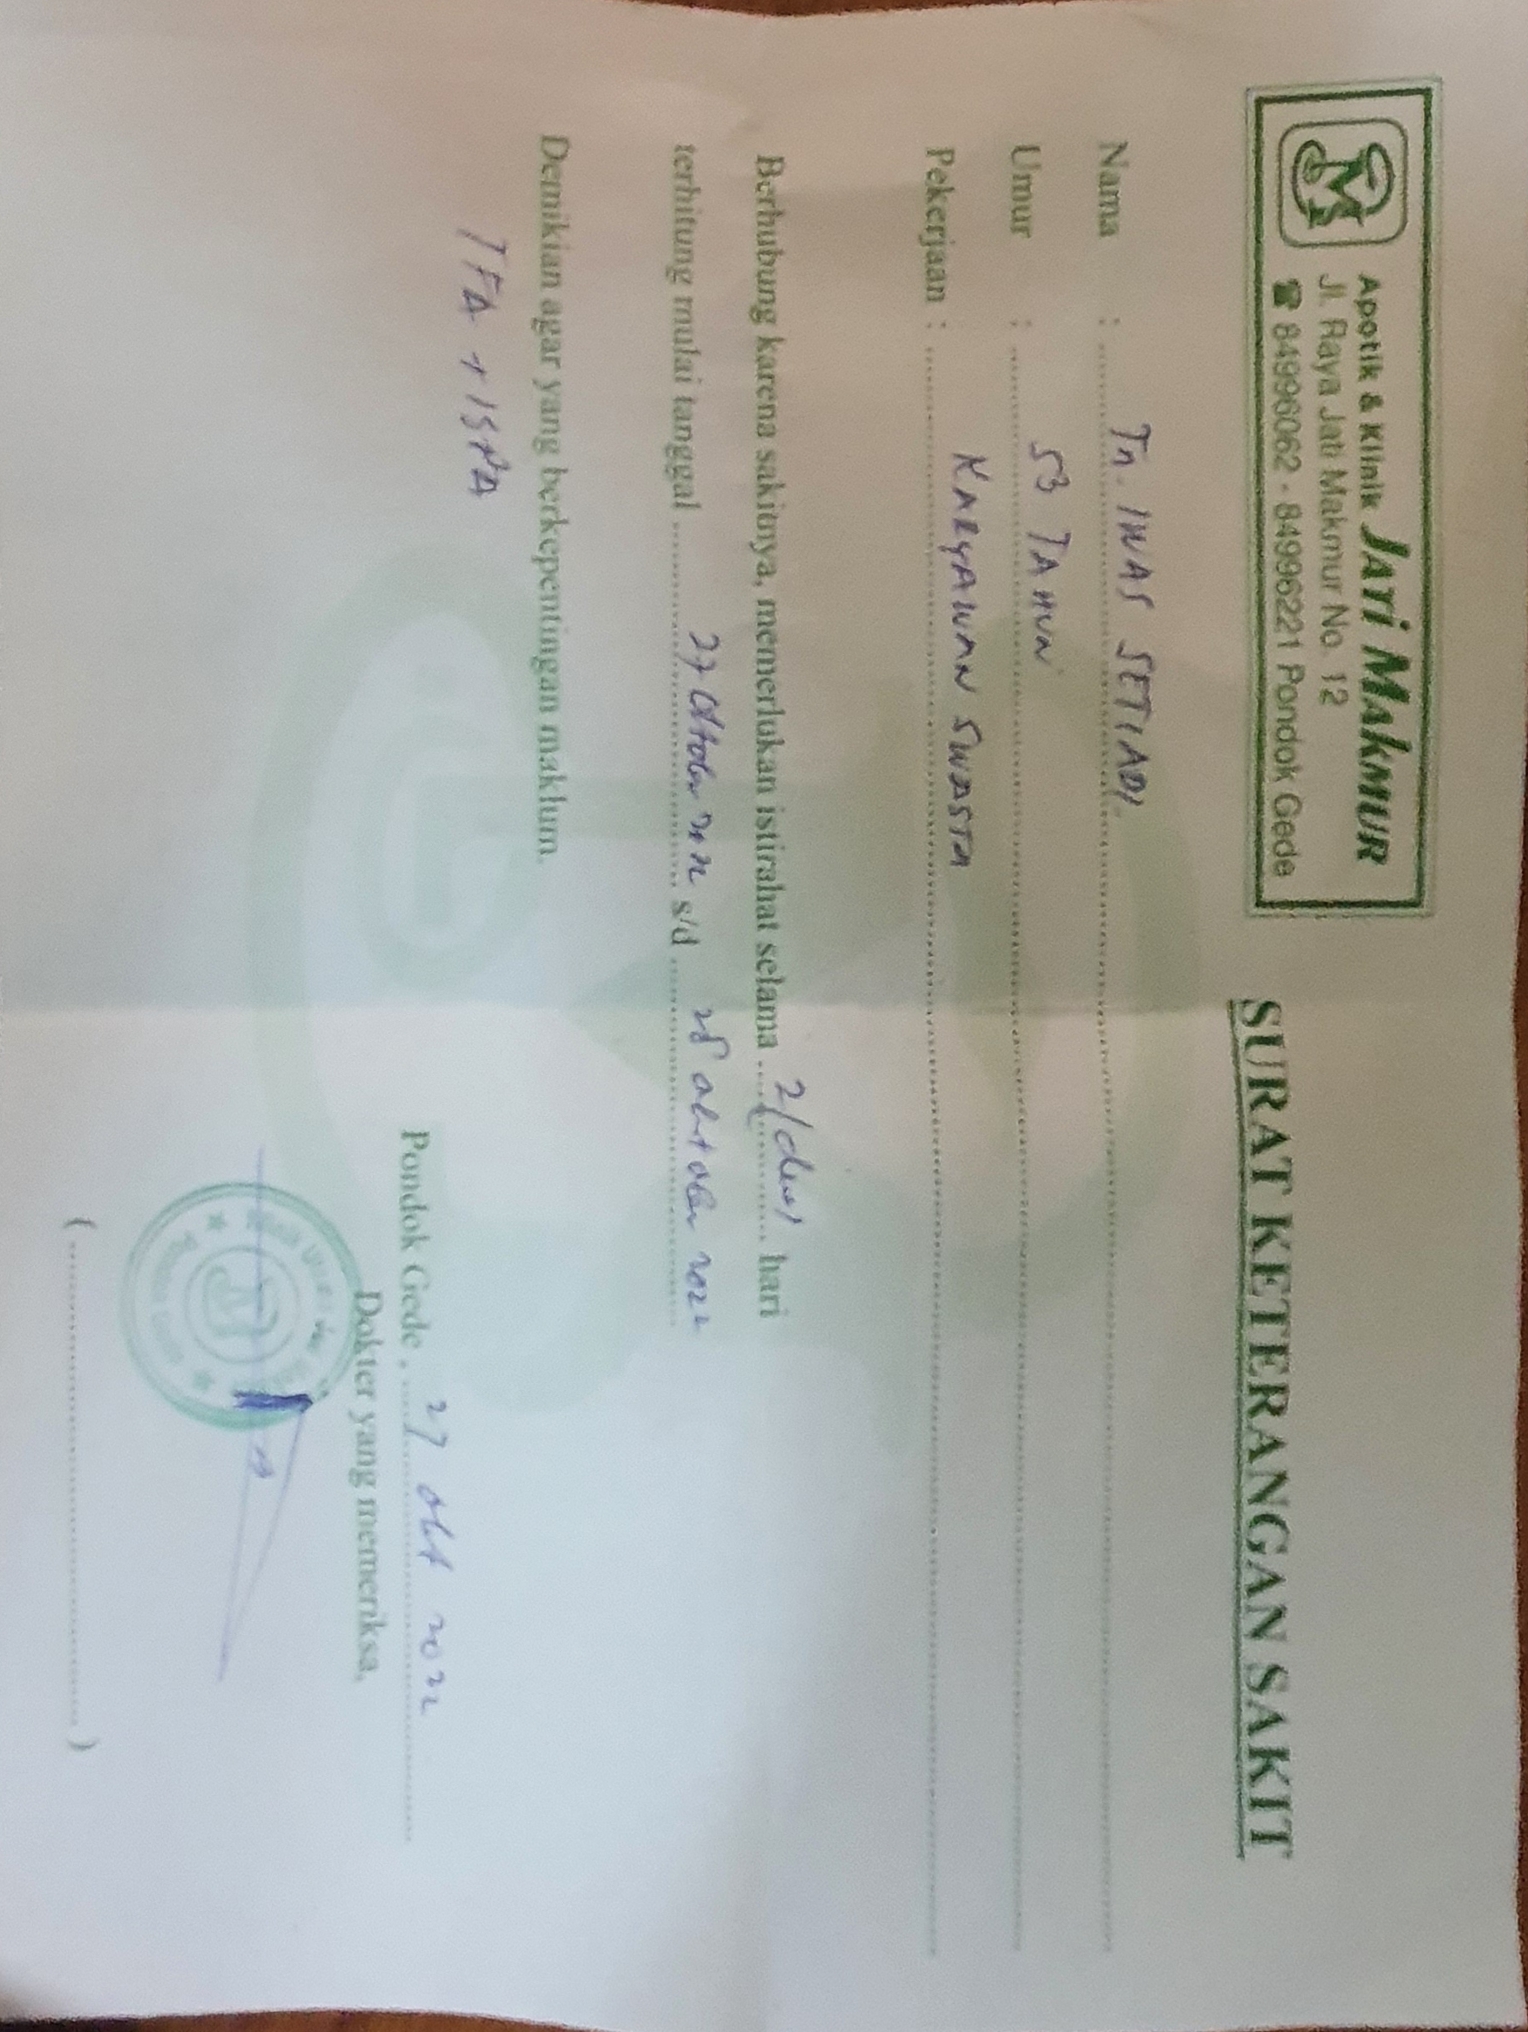 Apotik & Klinik JATI MAKMUR
Jl. Raya Jati Makmur No. 12
☎ 84996062 - 84996221 Pondok Gede
SURAT KETERANGAN SAKIT
Nama : Tn. IWAS SETIADI
Umur : 53 TAHUN
Pekerjaan : KARYAWAN SWASTA
Berhubung karena sakitnya, memerlukan istirahat selama 2/dua/ hari
terhitung mulai tanggal 27 Oktober 2022 s/d 28 oktober 2022
Demikian agar yang berkepentingan maklum.
TFA + ISPA
Pondok Gede, 27 okt 2022
Dokter yang memeriksa,
(                    )